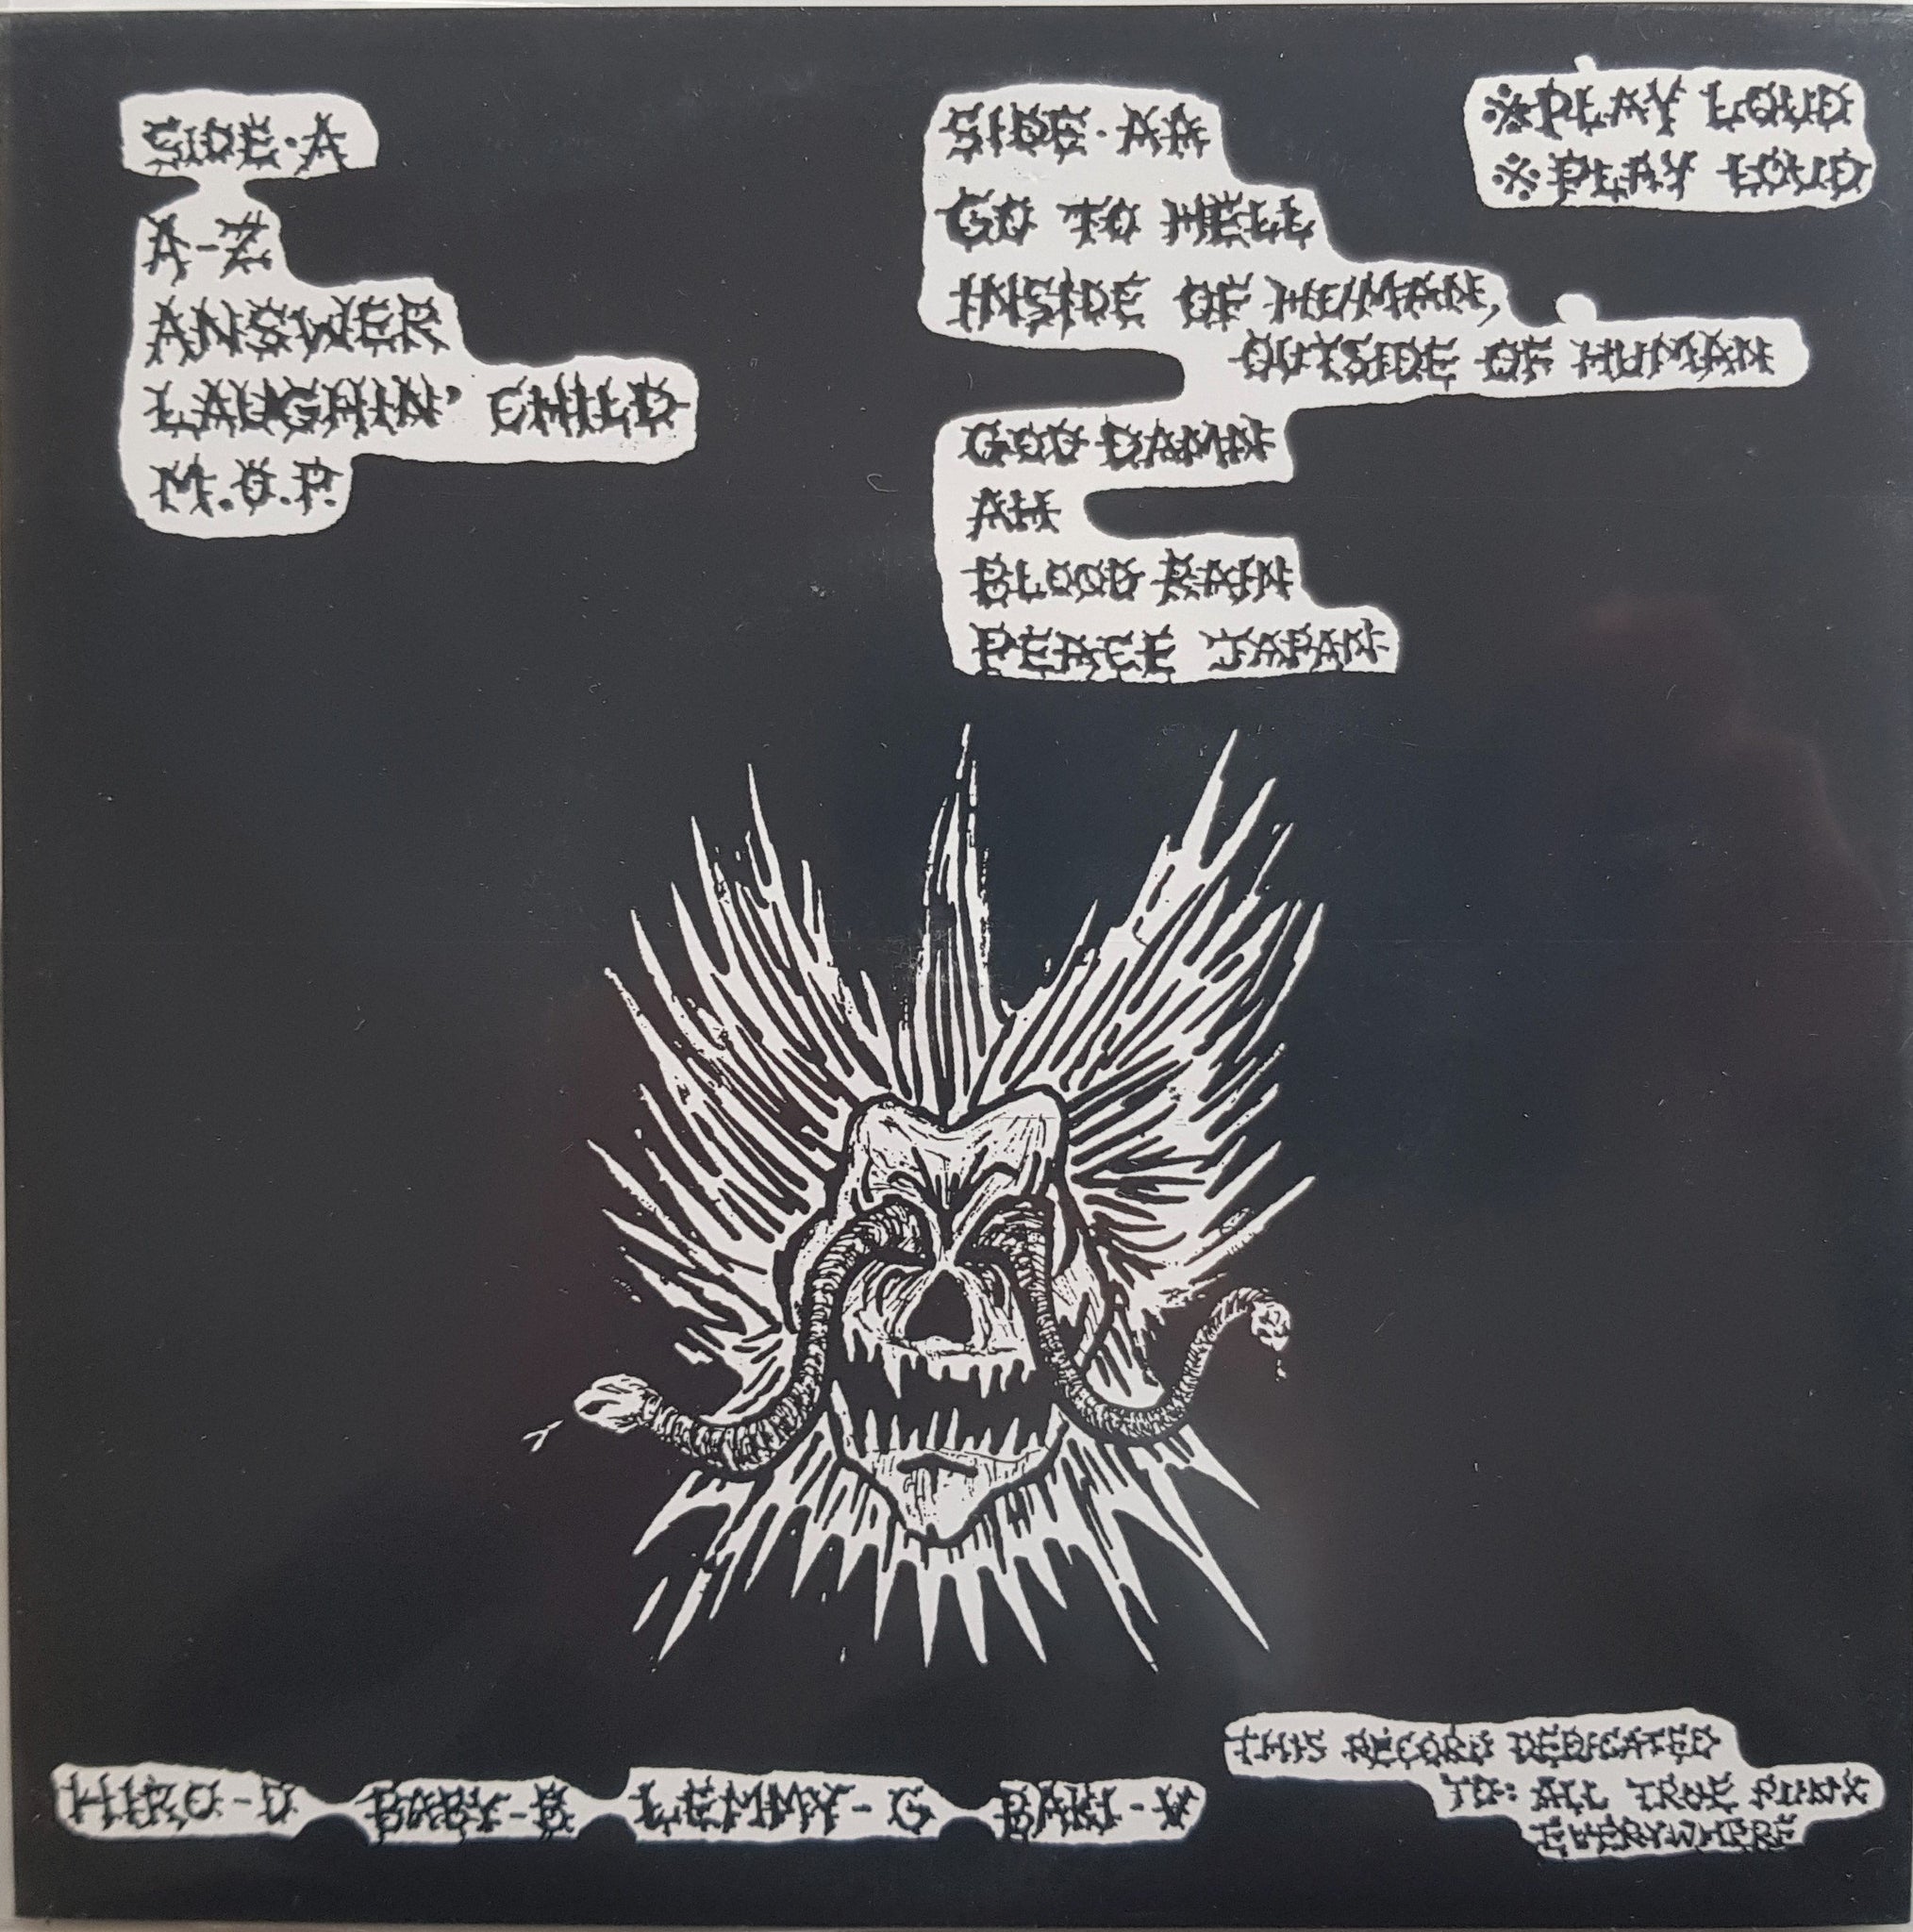 SIDE·A
A-Z
ANSWER
LAUGHIN' CHILD
M.O.P.
SIDE·AA
GO TO HELL
INSIDE OF HUMAN,
OUTSIDE OF HUMAN
GOD DAMN
AH
BLOOD RAIN
PEACE JAPAN
※PLAY LOUD
※PLAY LOUD
HIRO-D BABY-B LEMMY-G BAKI-V
THIS RECORD DEDICATED
TO: ALL TRUE PUNX
EVERYWHERE